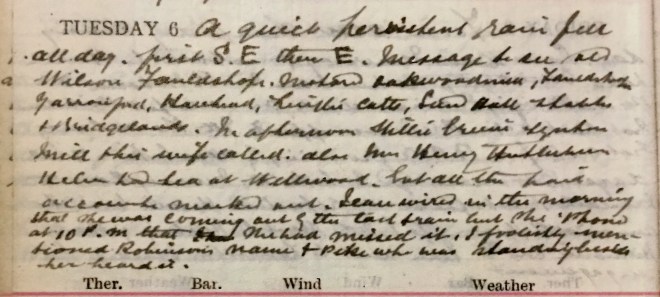 TUESDAY 6 A quiet persistent rain fell
all day. first S.E then E. Message to see old
Wilson Fauldshope. Motored oakwoodmill, Fauldshope
Yarrowford, Harehead, cotts, stables
& Bridgelands. In afternoon Willie
Mill & his wife called. also Mrs Henry
Helen had tea at Wellwood. Got all the paid
accounts marked out. Jean wired in the morning
that she was coming out by the last train but she 'Phoned
at 10 P.m that she had missed it. I foolishly men-
tioned Robinson's name & Pike who was standing beside
her heard it.
Ther. Bar. Wind Weather